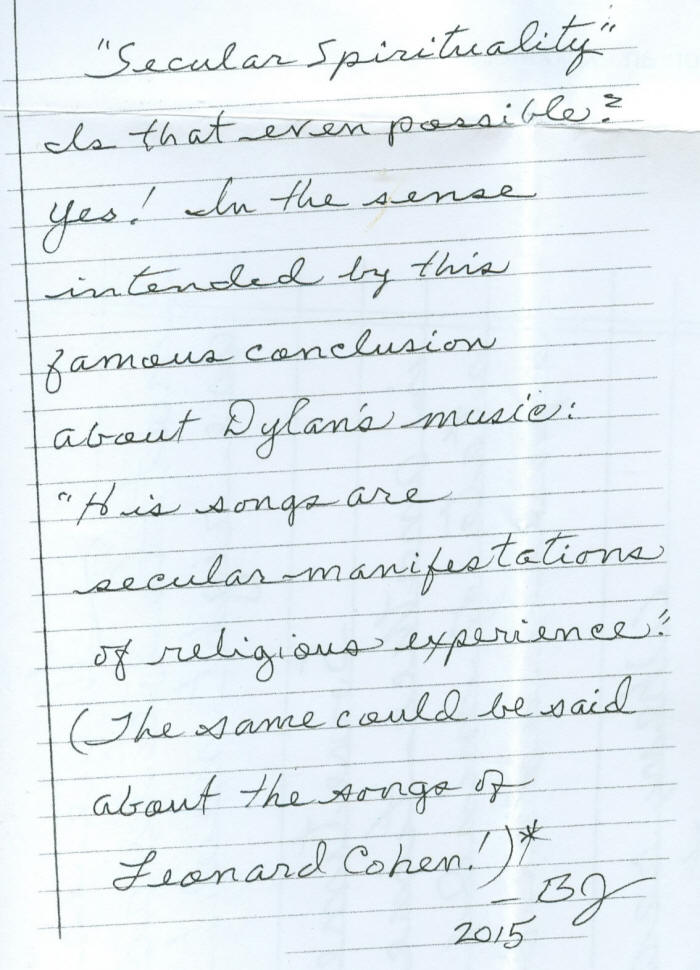 "Secular Spirituality"
Is that even possible?
Yes! In the sense
intended by this
famous conclusion
about Dylan's music:
"His songs are
secular manifestations
of religious experience."
(The same could be said
about the songs of
Leonard Cohen!)*
– BJ
2015